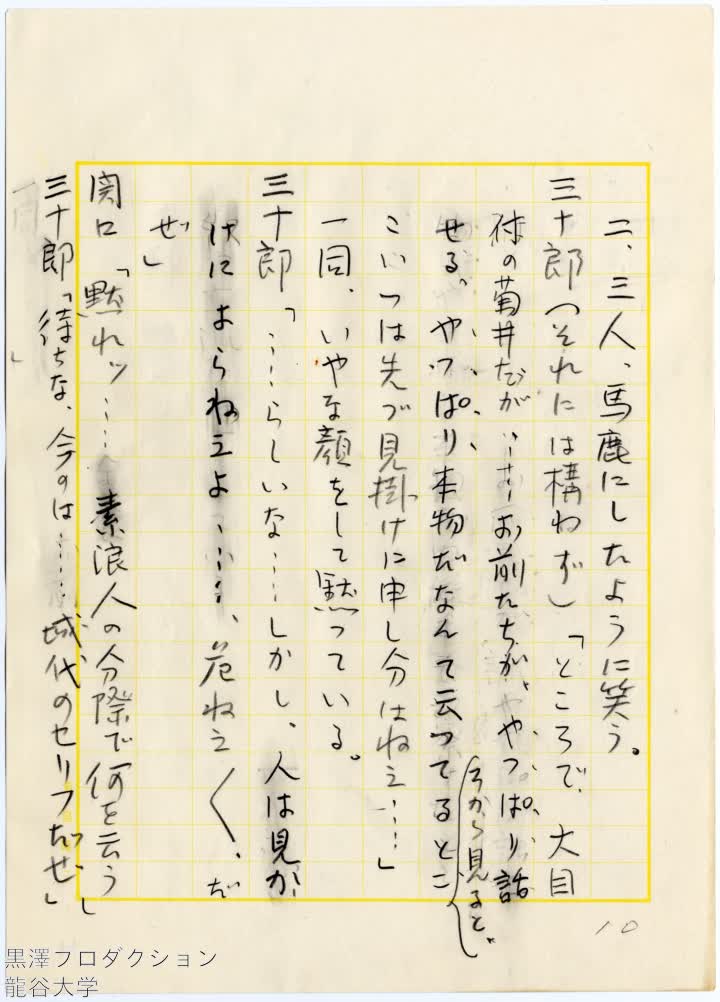 二、三人、馬鹿にしたように笑う。
三十郎(それには構わず)「ところで、大目
付の菊井だが……お前たちが、やっぱり話
せる、やっぱり本物だなんて云ってるとこ
ろから見ると、
こいつは先づ見掛けに申し分はねえ……」
一同、いやな顔をして黙っている。
三十郎「……らしいな……しかし、人は見か
けによらねえよ……、危ねえ〱、だ
ぜ」
関口「黙れッ…… 素浪人の分際で何を云う」
三十郎「待ちな、今のは……城代のセリフだぜ」
10
黒澤プロダクション
龍谷大学